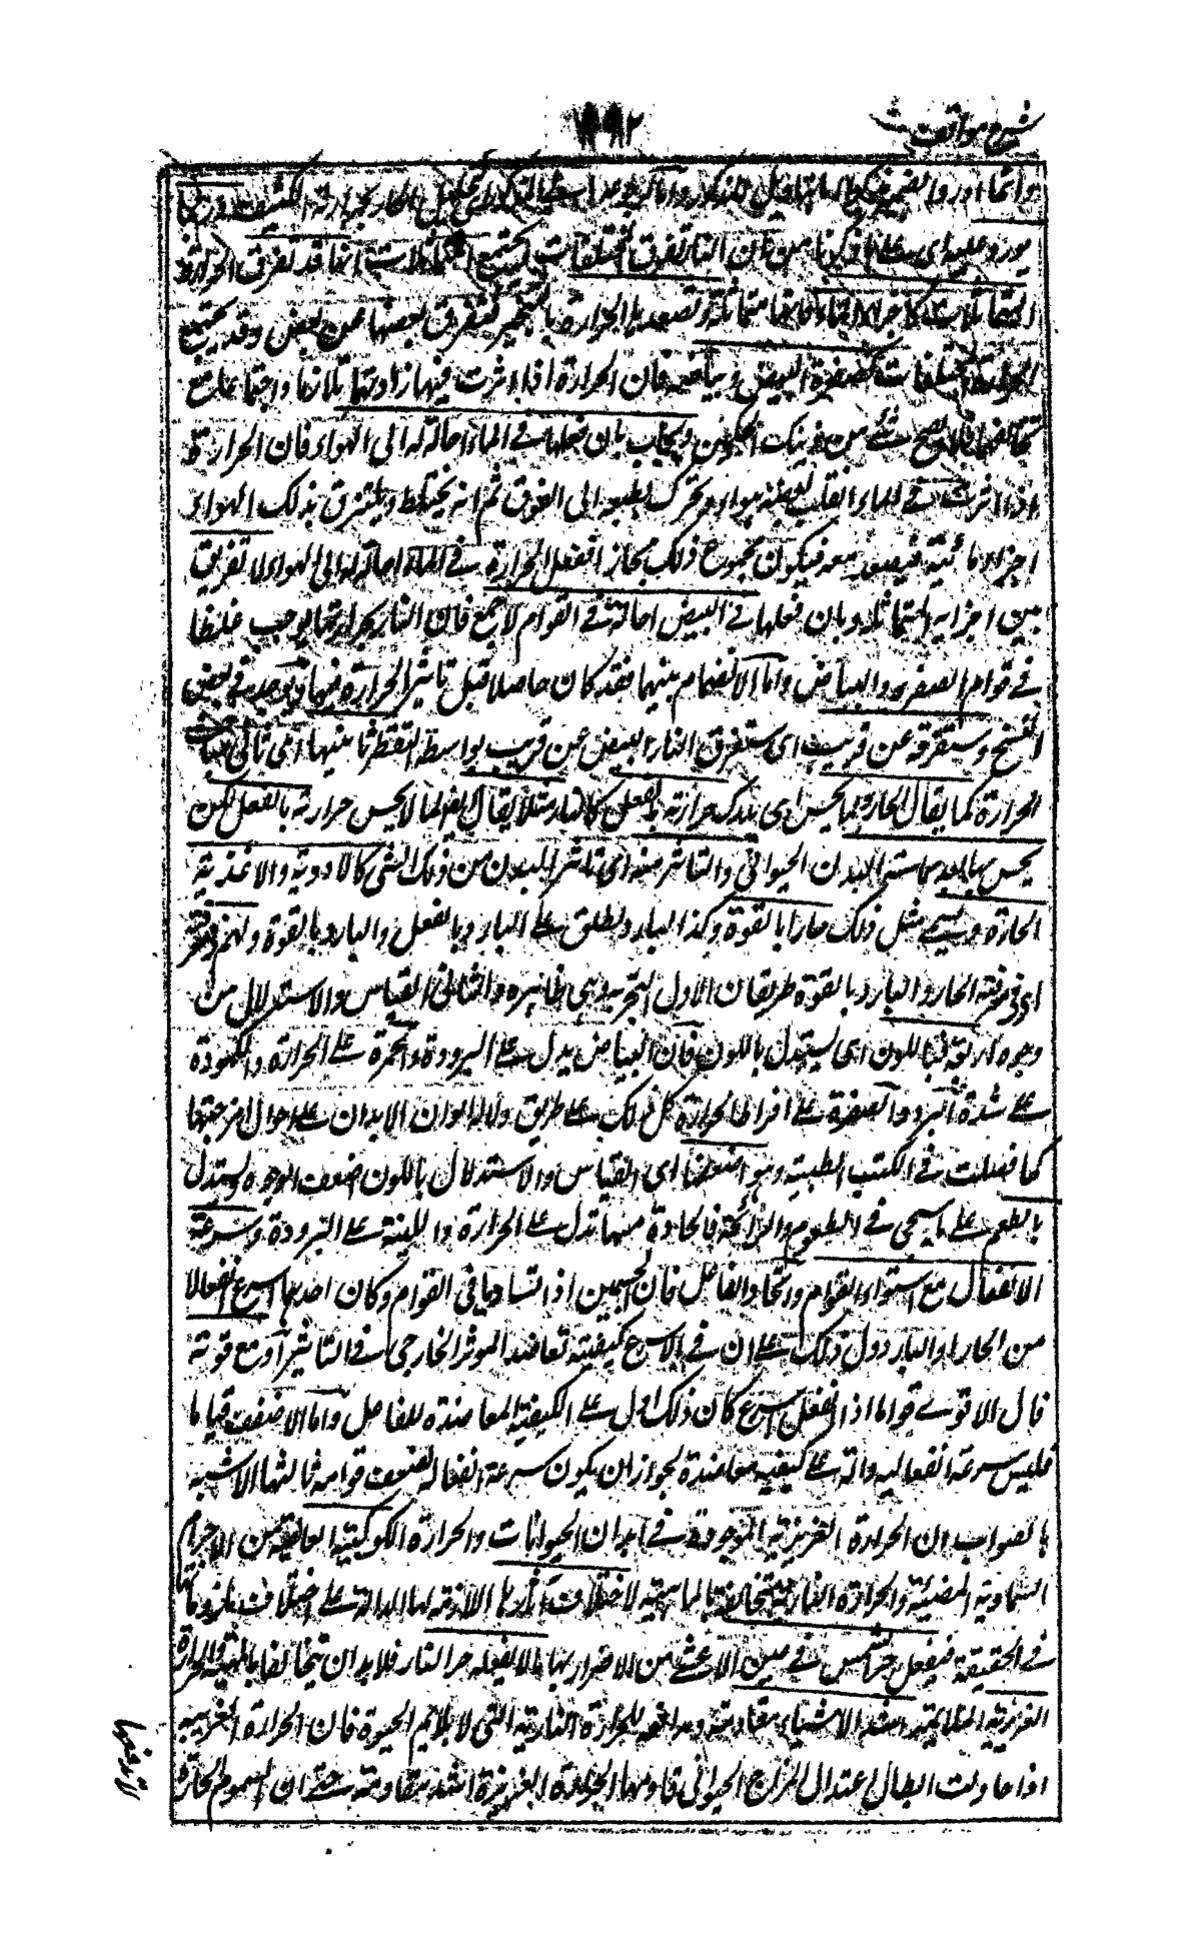 شرح مواقف
وانما اورد الضمير الحار الكثيف وربما
يورد عليه اى على ما ذكرنا من ان النار تفرق المختلفات وتجمع المتماثلات انها قد تفرق الحرارة
المتماثلات كاجزاء الماء فانها متماثلة وتصعد بالحرارة بالتبخير فتفرق بعضها عن بعض وقد تجمع
الحرارة المختلفات كصفرة البيض وبياضه فان الحرارة اذا اثرت فيها زادتها تلازما واجتماعا مع
تخالفهما فلا يصح شئ من ذينك الحكمين ويجاب بان فعلها فى الماء احالة له الى الهواء فان الحرارة
اذا اثرت فى الماء انقلب بعضه هواء وتحرك بطبعه الى الفوق ثم انه يختلط ويلتزق بذلك الهواء
اجزاء مائية فيصعد معه فيكون مجموع ذلك بخارا ففعل الحرارة فى الماء احالة له الى الهواء لا تفريق
بين اجزائه المتماثلة وبان فعلها فى البيض احالة فى القوام لا جمع فان النار بحرارتها يوجب غلظا
فى قوام الصفرة والبياض واما الانضمام بينهما فقد كان حاصلا قبل تاثير الحرارة فيهما ويوجد فى بعض
النسخ وستفرقه عن قريب اى ستفرق النار البيض عن قريب بواسطة التقطر ثانيها اى ثانى مباحث
الحرارة كما يقال الحار لما يحس اى يدرك حرارته بالفعل كالنار مثلا يقال ايضا لما لا يحس حرارته بالفعل لكن
يحس بها بعد مماسة البدن الحيوانى والتاثر منه اى تاثر البدن من ذلك الشئ كالادوية والاغذية
الحارة ويسمى مثل ذلك حارا بالقوة وكذا البارد يطلق على البارد بالفعل والبارد بالقوة ولهم فى معرفته
اى فى معرفة الحار والبارد بالقوة طريقان الاول التجربة وهى ظاهرة والثانى القياس والاستدلال من
وجوه اربعة فباللون اى يستدل باللون فان البياض يدل على البرودة والحمرة على الحرارة والكمودة
على شدة البرد والصفرة على افراط الحرارة كل ذلك على طريق دلالة الوان الابدان على احوال امزجتها
كما فصلت فى الكتب الطبية وهو اضعفها اى القياس والاستدلال باللون اضعف الوجوه ويستدل
بالطعم على ما سيجئ فى الطعوم والرائحة فالحادة منها تدل على الحرارة واللينة على البرودة وسرعة
الانفعال مع استواء القوام واتحاد الفاعل فان الجسمين اذا تساويا فى القوام وكان احدهما اسرع انفعالا
من الحار او البارد دل ذلك على ان فى الاسرع كيفية تعاضد الموثر الخارجى فى التاثير او مع قوته
فان الاقوى قواما اذا انفعل اسرع كان ذلك ادل على الكيفية المعاضدة للفاعل واما الاضعف قياما
فليس سرعة انفعاليه دالة على كيفية معاضدة لجواز ان يكون سرعة انفعاله لضعف قوامه ثالثها الاشبه
بالصواب ان الحرارة الغريزية الموجودة فى ابدان الحيوانات والحرارة الكوكبية الفائضة من الاجرام
السماوية المضيئة والحرارة النارية متخالفة بالماهية لاختلاف آثارها اللازمة لها الدالة على اختلاف ملزوماتها
فى الحقيقة فيفعل حر الشمس فى عين الاعشى من الاضرار بها ما لا يفعله حر النار فلا بد ان يتخالفا بالماهية والحرارة
الغريزية الملائمة اشد الاشياء مقاومة ومدافعة للحرارة النارية التى لا يلائم الحيوة فان الحرارة الغريبة
اذا حاولت ابطال اعتدال المزاج الحيوانى قاومها الحرارة الغريزية اشد مقاومة حتى ان السموم الحارة
لا تدفعها